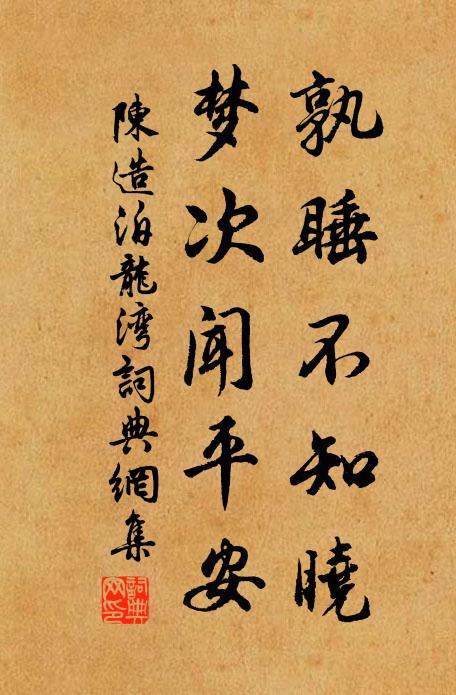 孰睡不知曉
梦次闻平安
陳造泊龍湾詞典網集
詞典网印